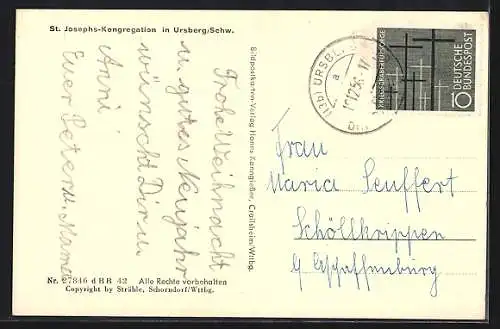 St. Josephs-Kongregation in Ursberg/Schw.
Frohe Weihnacht
u. gutes Neujahr
wünscht Dir u.
Anni
Euer Peter u. Mama
Nr. 27846 d HR 42 Alle Rechte vorbehalten
Copyright by Strähle, Schorndorf/Wttbg.
Bildpostkarten-Verlag Hanns Kenngießer, Crailsheim/Wttbg.
(13b) URSB
a
KRIEGSGRÄBERFÜRSORGE
DEUTSCHE
BUNDESPOST
10
Frau
Maria Seuffert
Schöllkrippen
b/ Aschaffenburg